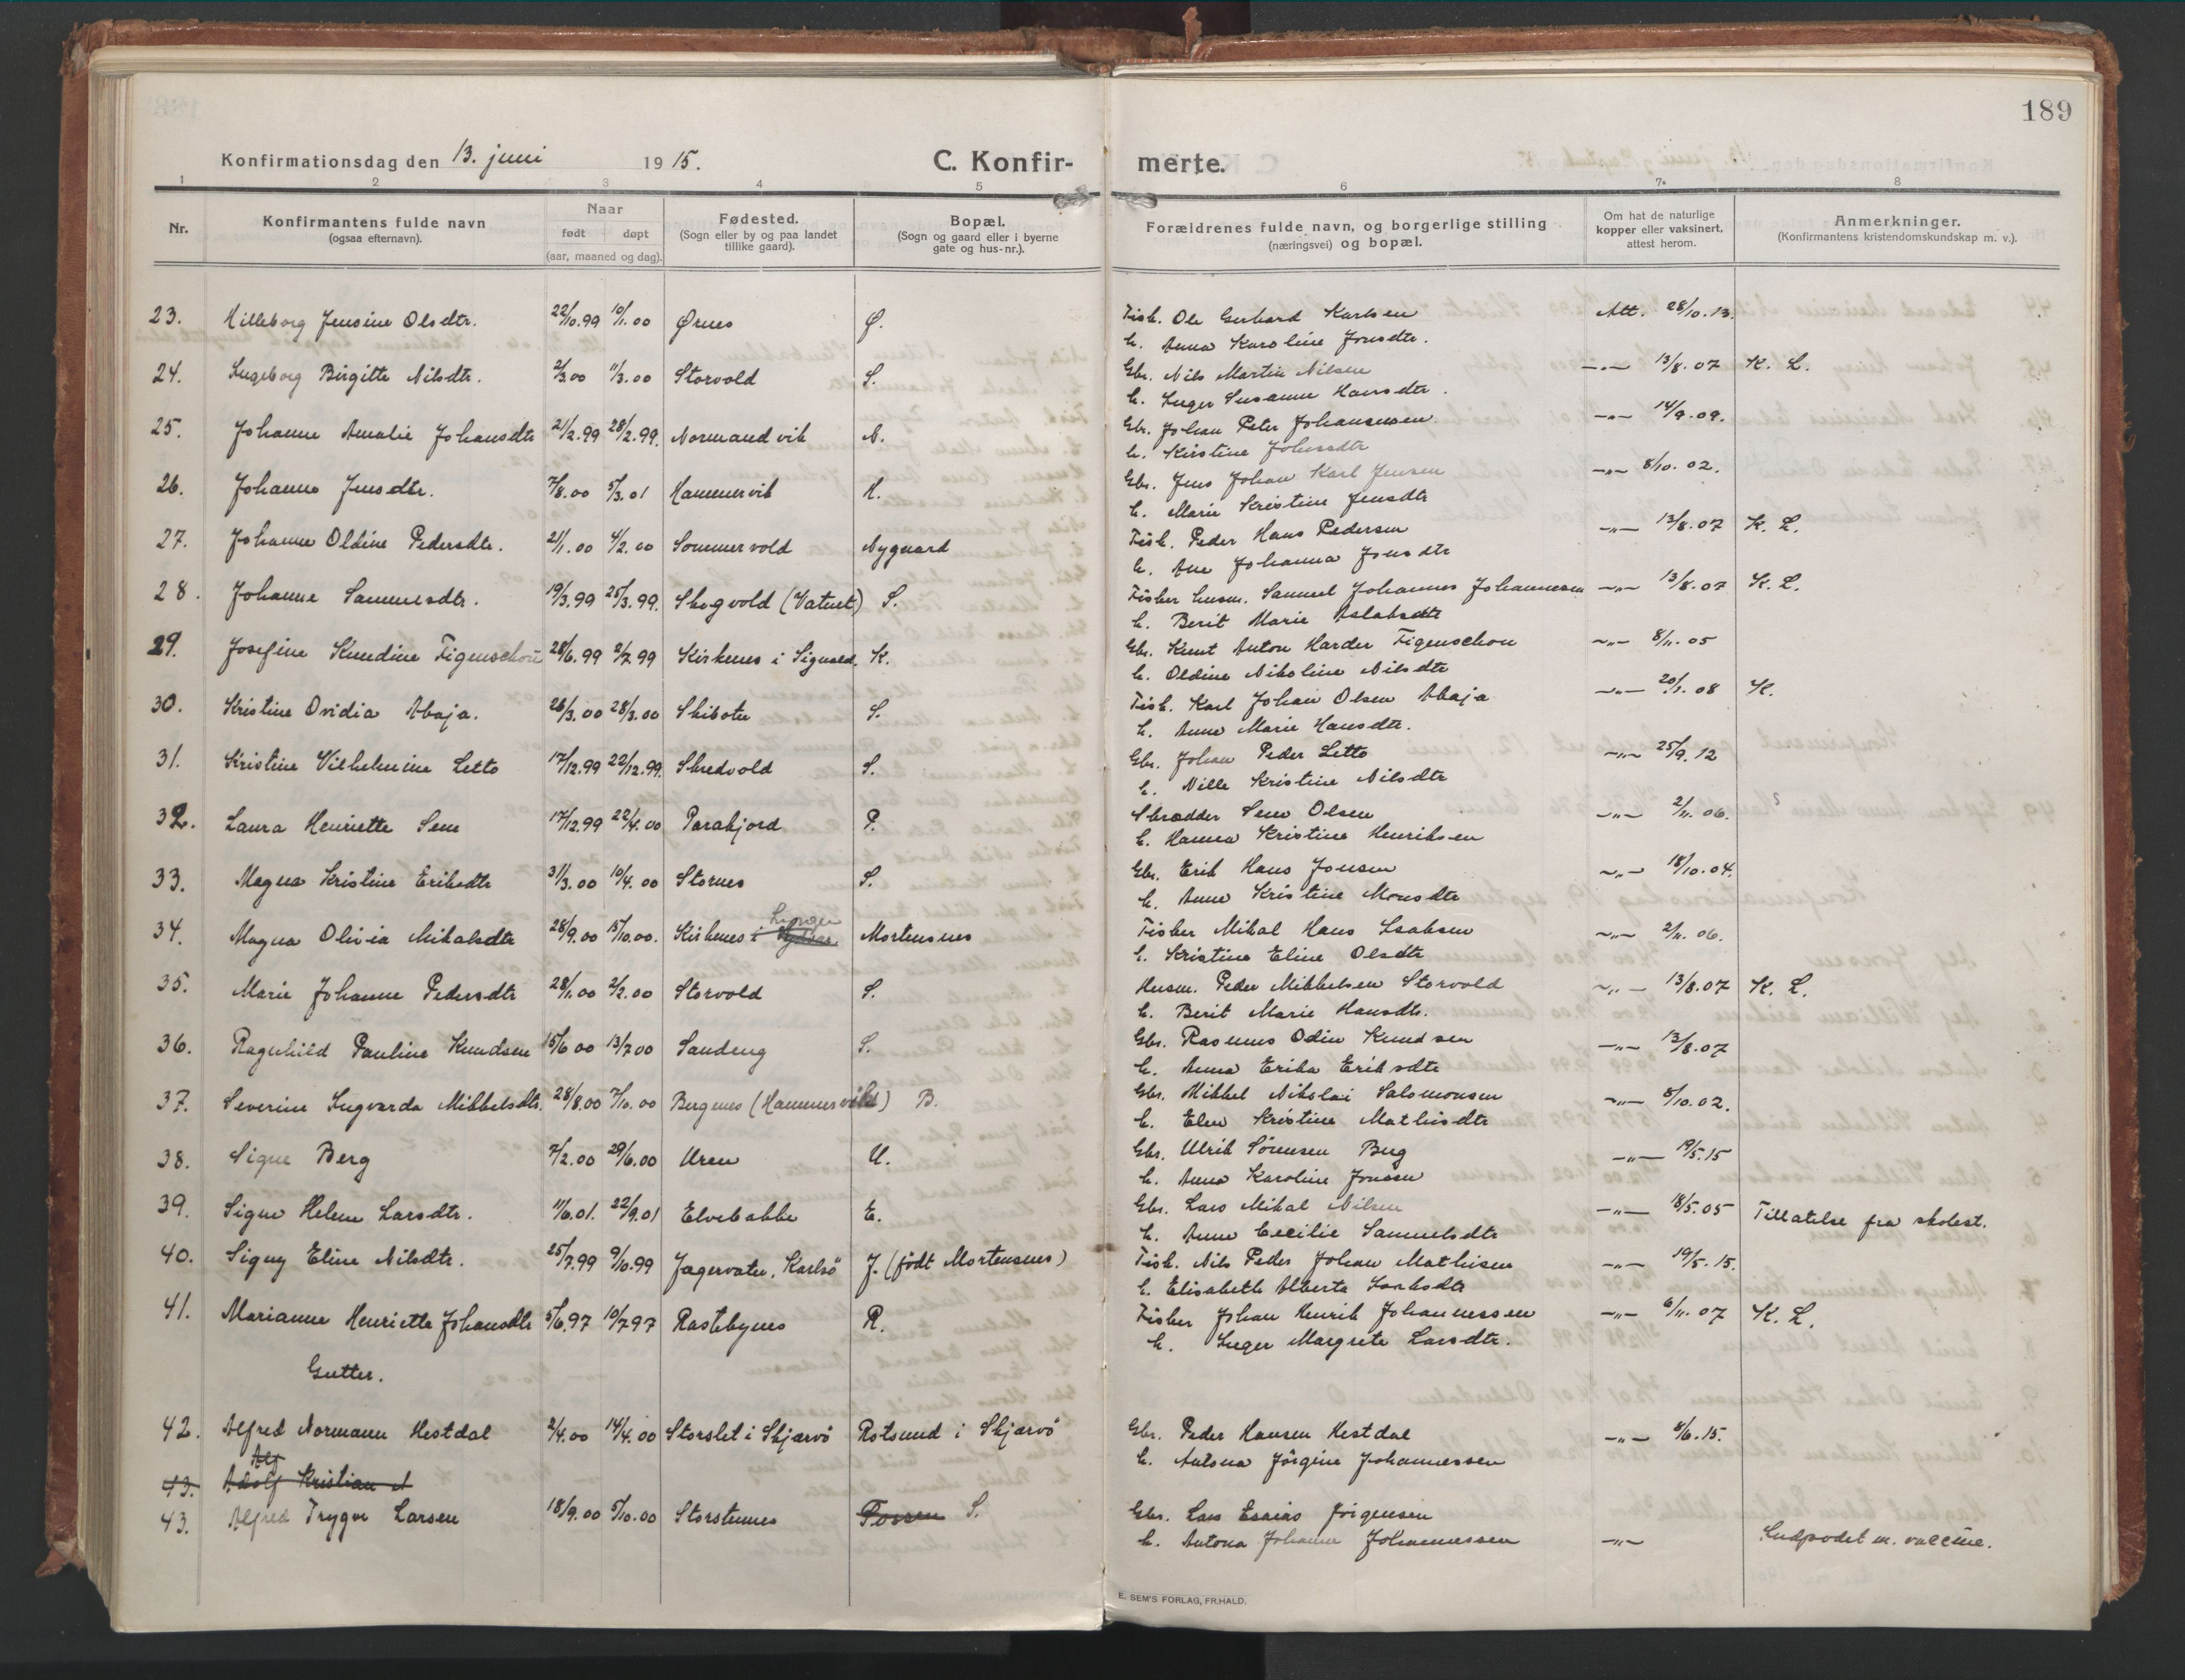 189
Konfirmationsdag den 13. juni 1915. C. Konfir- merte.
1 2 3 4 5 6 7 8
Nr. Konfirmantens fulde navn (ogsaa efternavn). Naar født døpt (aar, maaned og dag). Fødested. (Sogn eller by og paa landet tillike gaard). Bopæl. (Sogn og gaard eller i byerne gate og hus-nr.). Forældrenes fulde navn, og borgerlige stilling (næringsvei) og bopæl. Om hat de naturlige kopper eller vaksinert, attest herom. Anmerkninger. (Konfirmantens kristendomskundskap m. v.).
23. Hilleborg Jensine Olsdtr. 22/10.99 10/1.00 Ørnes Ø. Fisk. Ole Gerhard Karlsen Att. 28/10.13.
h. Anna Karoline Jonsdtr.
24. Ingeborg Birgitte Nilsdtr. 2/3.00 11/3.00 Storvold S. Gbr. Nils Martin Nilsen —„— 13/8.07 K. L.
h. Inger Susanne Hansdtr.
25. Johanne Amalie Johansdtr 21/2.99 28/2.99. Normandvik N. Gbr. Johan Peter Johannesen —„— 14/9.09.
h. Kirstine Johnsdtr
26. Johanne Jensdtr. 7/8.00 5/3.01 Hammervik H. Gbr. Jens Johan Karl Jensen —„— 8/10.02.
h. Marie Kristine Jensdtr
27. Johanne Oldine Pedersdtr. 21/1.00 4/2.00 Sommervold Nygaard Fisk. Peder Hans Pedersen —„— 13/8.07 K. L.
h. Ane Johanna Jonsdtr
28. Johanne Samuelsdtr. 19/3.99 25/3.99. Skogvold (Vatnet) S. Fisker husm. Samuel Johannes Johannesen —„— 13/8.07 K. L.
h. Berit Marie Aslaksdtr
29. Josefine Knudine Figenschou 28/6.99 2/7.99 Kirkenes i Signald. K. Gbr. Knut Anton Harder Figenschou —„— 8/11.05
h. Oldine Nikoline Nilsdtr
30. Kristine Ovidia Abaja. 26/3.00 28/3.00 Skibotn S. Fisk. Karl Johan Olsen Abaja —„— 20/1.08 K.
h. Anne Marie Hansdtr.
31. Kristine Vilhelmine Letto 17/12.99 22/12.99. Skredvold S. Gbr. Johan Peder Letto —„— 25/9.12
h. Nille Kristine Nilsdtr
32. Laura Henriette Sem 17/12.99 22/4.00 Parakjord P. Skrædder Sem Olsen —„— 2/11.06.
h. Hanna Kristine Henriksen
33. Magna Kristine Eriksdtr 31/3.00 10/4.00 Stornes S. Gbr. Erik Hans Jonsen —„— 18/10.04.
h. Anne Kristine Monsdtr
Lyngen
34. Magna Olivia Mikalsdtr 28/9.00 15/10.00. Kirkenes i Mortensnes Fisker Mikal Hans Isaksen —„— 2/11.06.
h. Kristine Eline Olsdtr
35. Marie Johanne Pedersdtr 28/1.00 2/2.00 Storvold S. Husm. Peder Mikkelsen Storvold —„— 13/8.07 K. L.
h. Berit Marie Hansdtr.
36. Ragnhild Pauline Knudsen 15/6.00 13/7.00 Sandeng S. Gbr. Rasmus Odin Knudsen —„— 13/8.07
h. Anna Erika Eriksdtr
37. Severine Ingvarda Mikkelsdtr. 28/8.00 7/10.00 Bergenes (Hammervik) B. Gbr. Mikkel Nikolai Salomonsen —„— 8/10.02.
h. Elen Kristine Mathisdtr
38. Signe Berg 7/2.00 29/6.00 Uren U. Gbr. Ulrik Sørensen Berg —„— 19/5.15
h. Anna Karoline Jonsen
39. Signe Helene Larsdtr. 11/6.01. 22/9.01 Elvebakke E. Gbr. Lars Mikal Nilsen —„— 18/5.05 Tillatelse fra skolest.
h. Anne Cecilie Samuelsdtr
40. Signy Eline Nilsdtr. 25/7.99 9/10.99 Jægervatn, Karlsö J. (født Mortensnes) Fisk. Nils Peder Johan Mathisen —„— 19/5.15.
h. Elisabeth Alberta Isaksdtr
41. Marianne Henriette Johansdtr 5/6.97 10/7.97 Rastebynes R. Fisker Johan Henrik Johannessen —„— 6/11.07 K. L.
h. Inger Margrete Larsdtr.
Gutter.
42. Alfred Normann Hestdal 2/4.00 14/4.00 Storslet i Skjærvö Rotsund i Skjærvö Gbr. Peder Hansen Hestdal —„— 8/6.15.
h. Antona Jörgine Johannessen
Alf
43. Adolf Kristian A
43. Alfred Trygve Larsen 18/9.00 5/10.00 Storstennes Fossen S. Gbr. Lars Esaias Jörgensen
h. Antona Johanne Johannessen —„— Indpodet m. vaccine.
E. SEM'S FORLAG, FR.HALD.